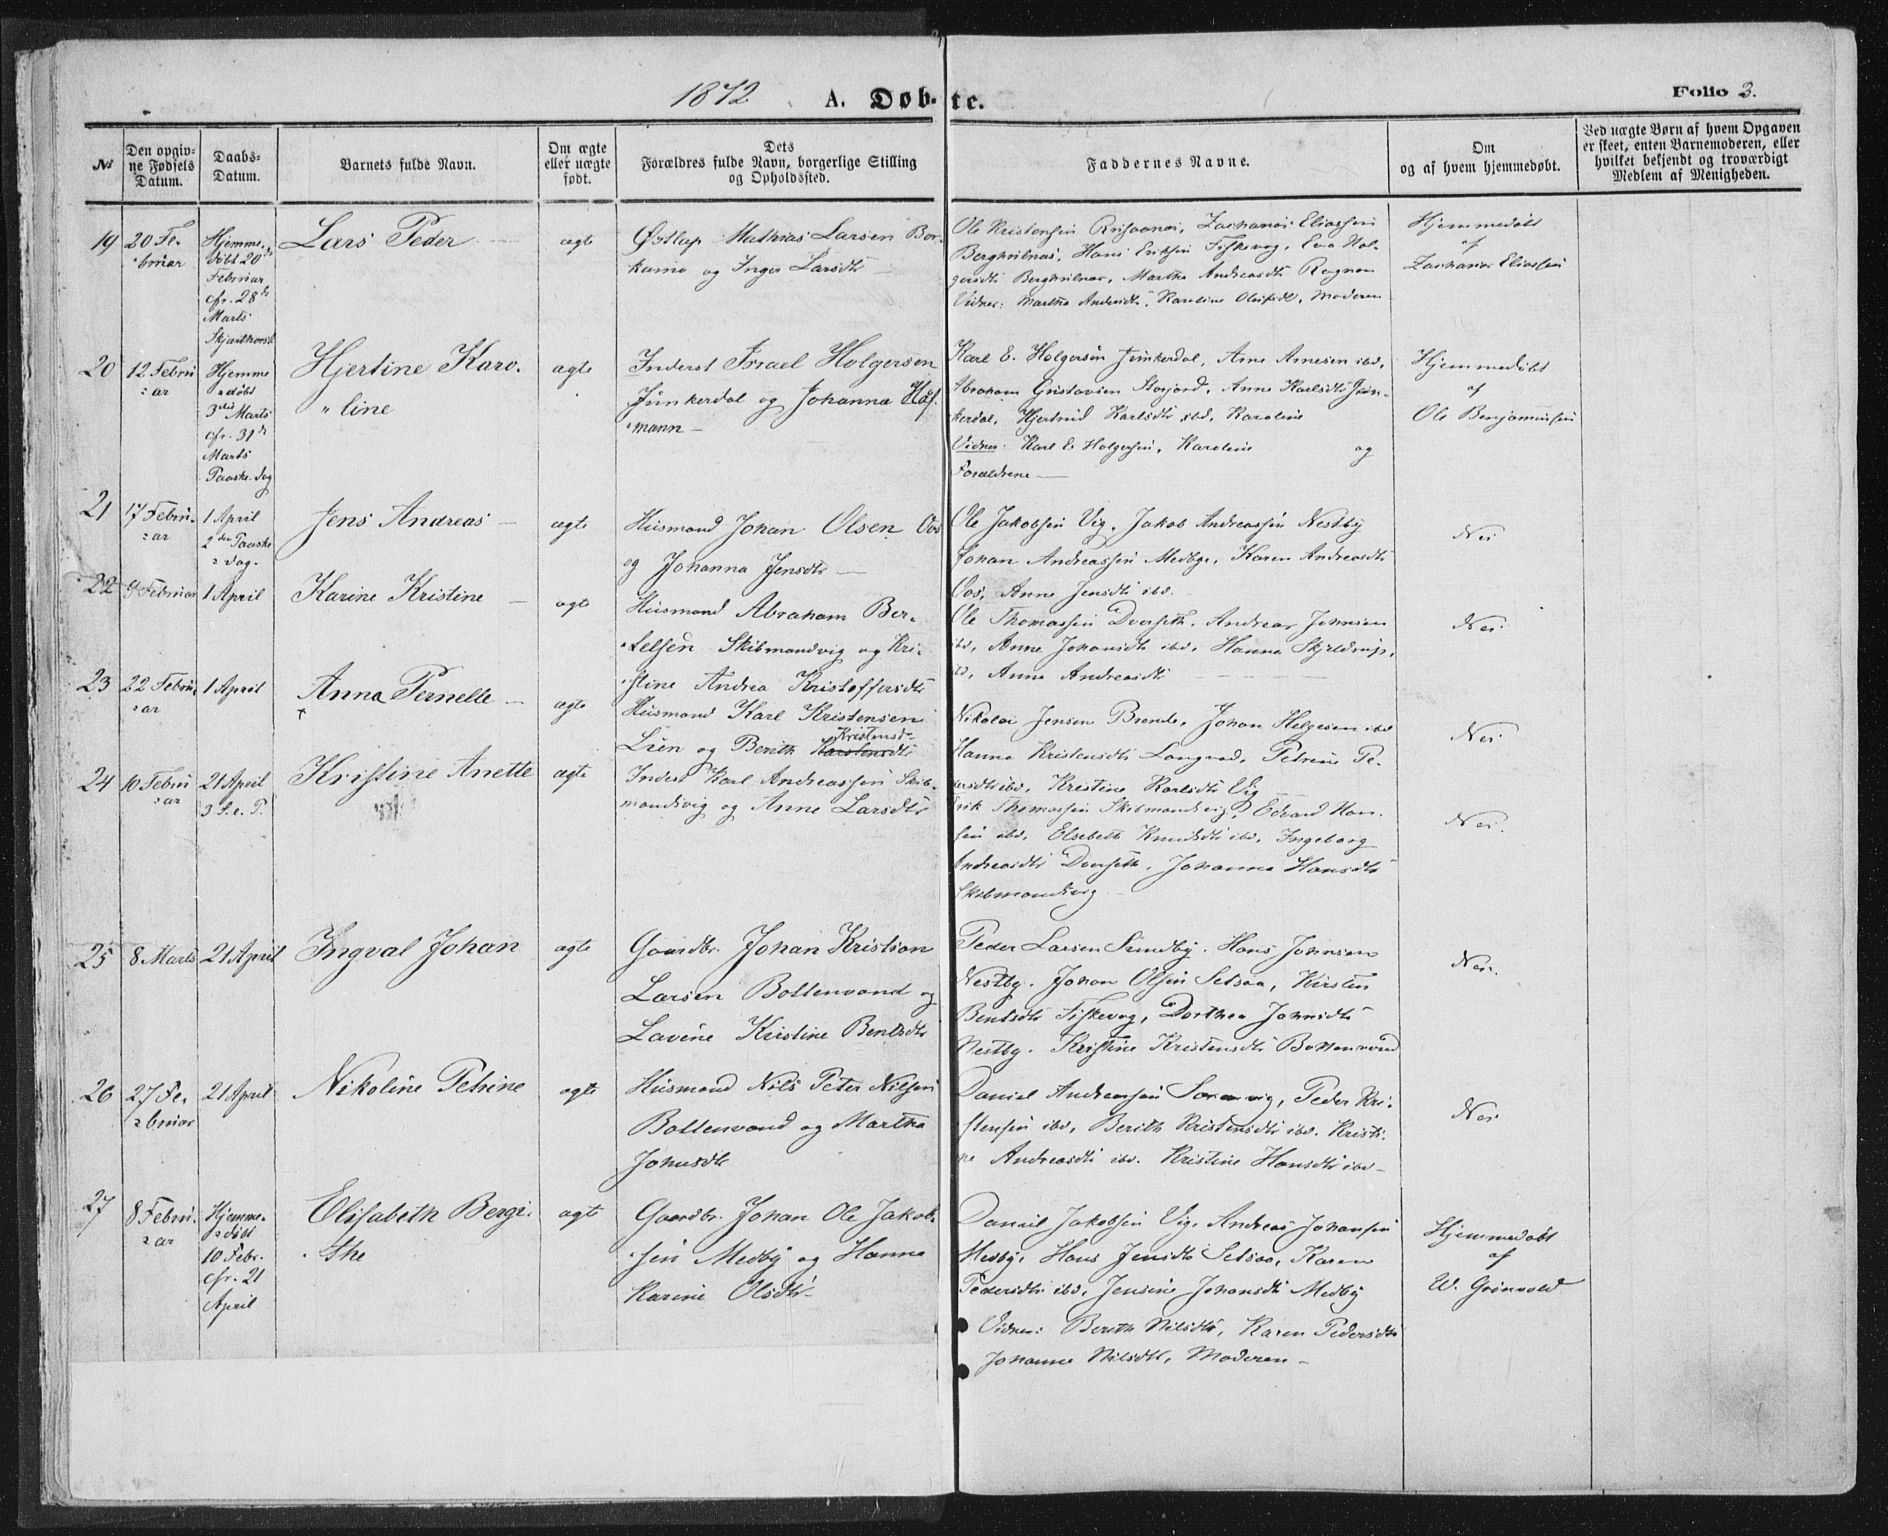 1872 A. Døbte. Folio 3.
No
Den opgiv-
ne Fødsels
Datum.
Daabs-
Datum.
Barnets fulde Navn.
Om ægte
eller uægte
født.
Dets
Forældres fulde Navn, borgerlige Stilling
og Opholdssted.
Faddernes Navne.
Om
og af hvem hjemmedøbt.
Ved uægte Børn af hvem Opgaven
er skeet, enten Barnemoderen, eller
hvilket bekjendt og troværdigt
Medlem af Menigheden.
19
20 Fe-
bruar
Hjemme-
døbt 20de
Februar
cfr. 28de
Marts
Lars Peder
ægte
Mathias Larsen Bor-
kamo og Inger Larsdtr
Ole Kristensen Zacharias Eliassen
Berghulnæs, Hans Eriksen Fiskevog, Eva Hol-
gersdtr Berghulnæs, Martha Andreasdtr Rognan
Vidner: Martha Andrsdtr, Karoline Olufsdt, Moderen
Hjemmedøbt
af
Zacharias Eliassen
20
12 Febru
ar
Hjemme
døbt
3die Marts
cfr. 31te
Marts
Paaske-dag
Hjertine Karo-
line
ægte
Inderst Israel Holgersen
Junkerdal og Johanna Hof-
mann
Karl E. Holgersen Junkerdal, Arne Arnesen ibd,
Abraham Gustavsen Storjord, Anne Karlsdtr Jun-
kerdal, Hjertrud Karlsdtr ibd, Karoline
Vidner: Karl E Holgersen, Karoline og
Forældrene
Hjemmedøbt
af
Ole Benjaminsen
21
17 Febru-
ar
1 April
2den Paaske
dag.
Jens Andreas
ægte
Husmand Johan Olsen Oos
og Johanna Jensdtr
Ole Jakobsen Vig, Jakob Andreassen Nestby
Johan Andreassen Medbye, Karen Andreasdtr
Oos, Anne Jensdtr ibd.
Nei
22
9 Februar
1 April
Karine Kristine
ægte
Husmand Abraham Ber-
telsen Skibmandvig og Kri-
stine Andrea Kristoffersdtr
Ole Thomassen Dverseth, Andreas Johnsen
ibd, Anne Johansdtr ibd, Hanna Skjeldrup,
ibd, Anne Andreasdt
Nei
23
22 Febru
ar
1 April
Anna Pernelle
ægte
Husmand Karl Kristensen
Lien og Berith Karstensdtr
Kristensd-
Nikolai Jensen Brende, Johan Helgesen ibd
Hanna Kristensdtr Langvad, Petrine Pe-
dersdtr ibd, Kristine Karlsdtr Vig
Nei
24
10 Febru
ar
21 April
3 S. e. P.
Kristine Anette
ægte
Inderst Karl Andreassen Skib-
mandvig og Anne Larsdtr
Erik Thomassen Skibmandvig, Edvard Han-
sen ibd, Elsebeth Knudsdtr ibd, Ingeborg
Andreasdtr Dverseth, Johanna Hansdtr
Skibmandvig
Nei.
25
8 Marts
21 April
Ingval Johan
ægte
Gaardbr. Johan Kristian
Larsen Bottenvand og
Lavine Kristine Bentsdtr
Peder Larsen Sundby, Hans Johnsen
Nestby, Johan Olsen Setsaa, Kirsten
Bentsdtr Fiskevog, Dorthea Johnsdtr
Nestby, Kristine Kristensdtr Bottenvand
Nei.
26
27 Fe-
bruar
21 April
Nikoline Petrine
ægte
Husmand Nils Peter Nilsen
Bottenvand og Martha
Johnsdtr
Daniel Andreassen Saxenvig, Peder Kri-
stensen ibd, Berith Kristensdtr ibd. Kristi-
ne Andreasdt ibd. Kristine Hansdtr ibd
Nei
27
8 Febru-
ar
Hjemme-
døbt
10 Febr.
cfr. 21
April
Elisabeth Bergi-
the
ægte
Gaardbr. Johan Ole Jakob-
sen Medby og Hanna
Karine Olsdtr
Daniel Jakobsen Vig, Andreas Johansen
Medby, Hans Jensdtr Setsaa, Karen
Pedersdtr ibd, Jensine Johansdtr Medby
Vidner: Berith Nilsdtr, Karen Pedersdtr
Johanne Nilsdtr, Moderen
Hjemmedøbt
af
W. Grønvold